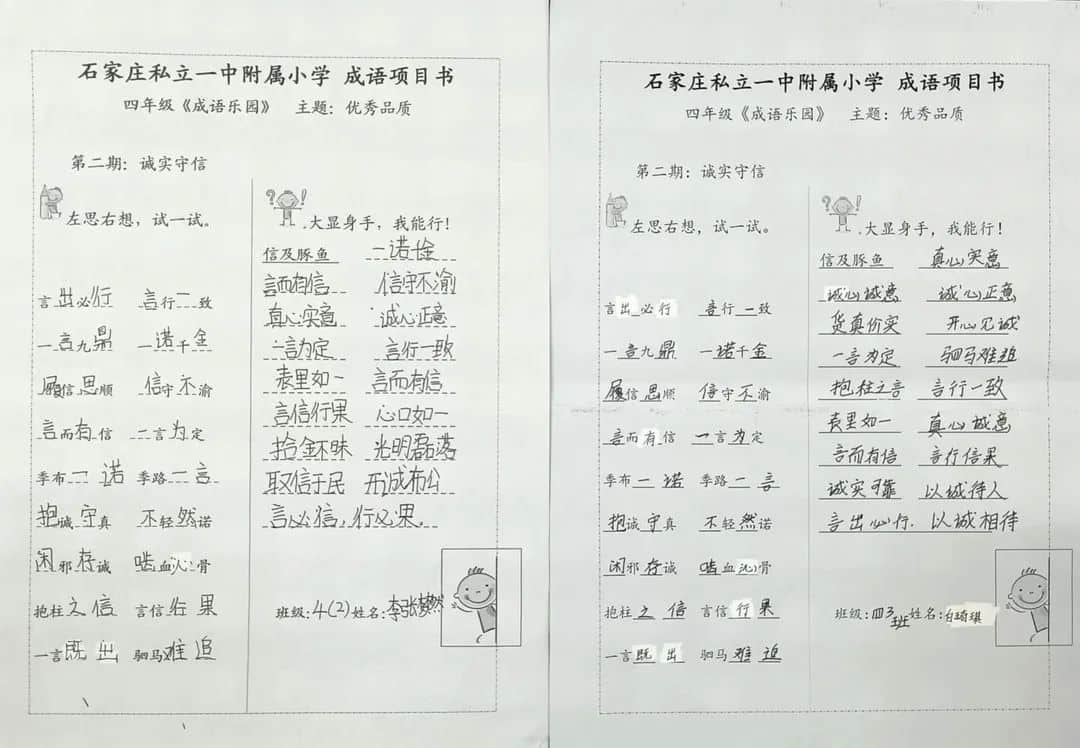 石家庄私立一中附属小学 成语项目书
四年级《成语乐园》 主题：优秀品质
第二期：诚实守信
左思右想，试一试。
言出必行 言行一致
一言九鼎 一诺千金
履信思顺 信守不渝
言而有信 一言为定
季布一诺 季路一言
抱诚守真 不轻然诺
闲邪存诚 啮血沁骨
抱柱之信 言信行果
一言既出 驷马难追
?!
大显身手，我能行！
信及豚鱼 一诺千金
言而有信 信守不渝
真心实意 诚心正意
一言为定 言行一致
表里如一 言而有信
言信行果 心口如一
拾金不昧 光明磊落
取信于民 开诚布公
言必信，行必果
班级：4(2) 姓名：李张梦然
石家庄私立一中附属小学 成语项目书
四年级《成语乐园》 主题：优秀品质
第二期：诚实守信
左思右想，试一试。
言出必行 言行一致
一言九鼎 一诺千金
履信思顺 信守不渝
言而有信 一言为定
季布一诺 季路一言
抱诚守真 不轻然诺
闲邪存诚 啮血沁骨
抱柱之信 言信行果
一言既出 驷马难追
?!
大显身手，我能行！
信及豚鱼 真心实意
诚心诚意 诚心正意
货真价实 开心见诚
一言为定 驷马难追
抱柱之言 言行一致
表里如一 真心诚意
言而有信 言行信果
诚实可靠 以诚待人
言出必行. 以诚相待
班级：四3班 姓名：白琦琪